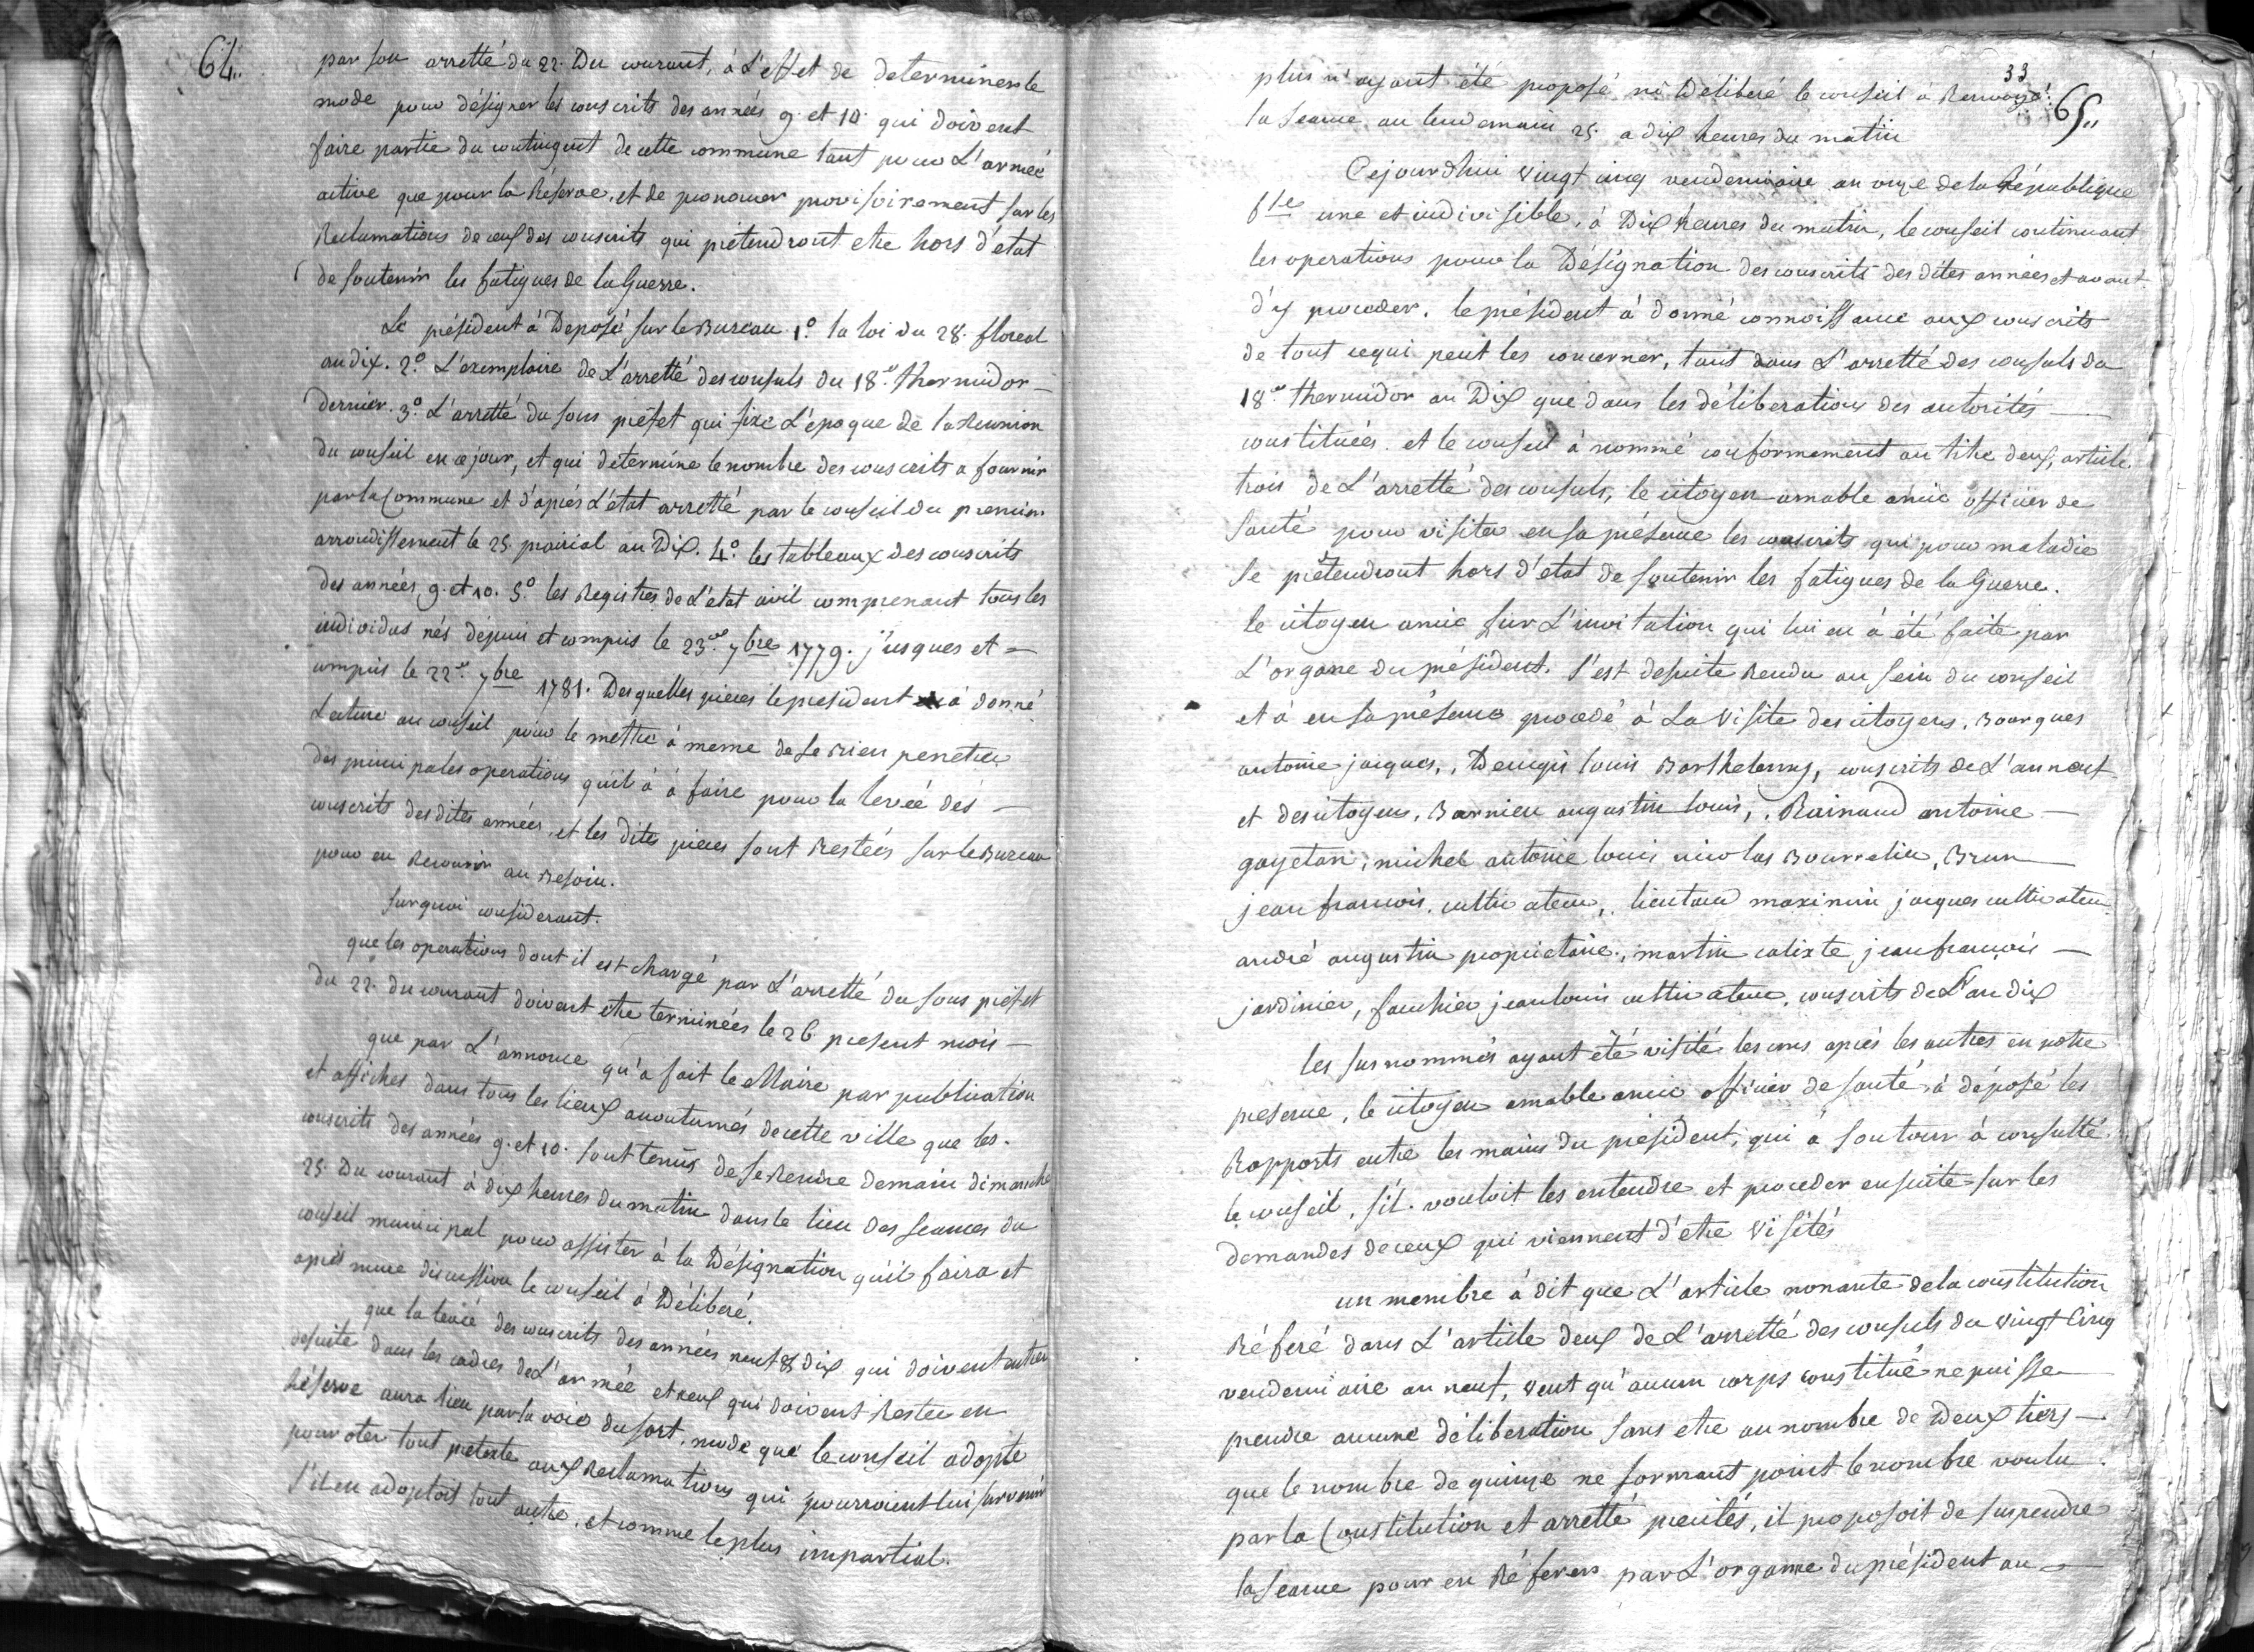 64..
par son arretté du 22. Du courant, à L'effet de determiner le
mode pour désigner les conscrits des années 9. et 10. qui doivent
faire partie du contingent de cette commune tant pour L'armée
active que pour la Réserve, et de prononcer provisoirement sur les
Reclamations de ceux des conscrits qui prétendront etre hors d'état
de soutenir les fatigues de la Guerre.
Le président à Deposé sur le Bureau 1.° la loi du 28. floreal
an dix. 2.° L'exemplaire de L'arretté des consuls du 18.e thermidor
dernier. 3.° L'arretté du sous préfet qui fixe L'époque de la Reunion
du conseil en ce jour, et qui determine le nombre des conscrits a fournir
par la Commune et d'après L'état arretté par le conseil du premier
arrondissement le 25. prairial an Dix. 4.° les tableaux des conscrits
des années 9. et 10. 5.° les Registres de L'état civil comprenant tous les
individus nés depuis et compris le 23.e 7bre 1779. j'usques et
compris le 22.e 7bre 1781. Desquelles pieces le president à donné
Lecture au conseil pour le mettre à meme de se bien penetrer
des principales operations qu'il à à faire pour la levée des
conscrits des dites années, et les dites pieces sont Restées sur le Bureau
pour en Recourir au Besoin.
surquoi considerant.
que les operations dont il est chargé par L'arretté du sous préfet
du 22. du courant doivent etre terminées le 26. present mois
que par L'annonce qu'a fait le Maire par publication
et affiches dans tous les lieux accoutumés de cette ville que les.
conscrits des années 9. et 10. sont tenus de se Rendre demain dimanche
25. Du courant à dix heures du matin dans le lieu des seances du
conseil municipal pour assister à la Désignation qu'il faira et
après mure discussion le conseil à Déliberé.
que la levée des conscrits des années neuf & dix qui doivent entrer
desuite dans les cadres de L'armée et ceux qui doivent Rester en
Réserve aura lieu par la voie du sort, mode que le conseil adopte
pour oter tout pretexte aux Reclamations qui pourroient lui survenir
s'il en adoptoit tout autre, et comme le plus impartial.
33
65..
plus n'ayant été proposé ni Déliberé le conseil à Renvoyé
la seance au lendemain 25. a dix heures du matin
Cejourdhui vingt cinq vendemiaire an onze de la République
fse une et indivisible, à Dix heures du matin, le conseil continuant
les operations pour la Désignation des conscrits des dites années et avant
d'y proceder, le président à donné connoissance aux conscrits
de tout ce qui peut les concerner, tant dans L'arretté des consuls du
18.e thermidor an Dix que dans les déliberations des autorités
constituées et le conseil à nommé conformement au titre deux, article
trois de L'arretté des consuls, le citoyen amable amic officier de
santé pour visiter en sa présence les conscrits qui pour maladie
se prétendront hors d'état de soutenir les fatigues de la Guerre.
le citoyen amic sur L'invitation qui lui en à été faite par
L'organe du président. s'est desuite Rendu au sein du conseil
et à en sa présence procedé à La Visite des citoyens, Bourques
antoine jacques, Barthelemy, conscrits de L'an neuf
et des citoyens, Barnieu augustin louis, Rainaud antoine
gayetan, michel antoine louis nicolas Bourrelier, Brun
jean francois, cultivateur, lieutaud maximin jacques cultivateur
andré augustin proprietaire, martin calixte jean francois
jardinier, fauchier jean louis cultivateur, conscrits de L'an dix
les susnommés ayant été visité les uns après les autres en notre
presence, le citoyen amable amic officier de santé, à déposé les
Rapports entre les mains du président, qui à son tour à consulté
le conseil, s'il vouloit les entendre et proceder ensuite sur les
demandes de ceux qui viennent d'etre Visités
un membre à dit que L'article nonante de la constitution
Réferé dans L'article deux de L'arretté des consuls du vingt Cinq
vendemiaire an neuf, veut qu'aucun corps constitué ne puisse
prendre aucune déliberation sans etre au nombre de Deux tiers
que le nombre de quinze ne formant point le nombre voulu
par la Constitution et arretté precités, il proposoit de suspendre
la seance pour en Réferer par L'organe du président au